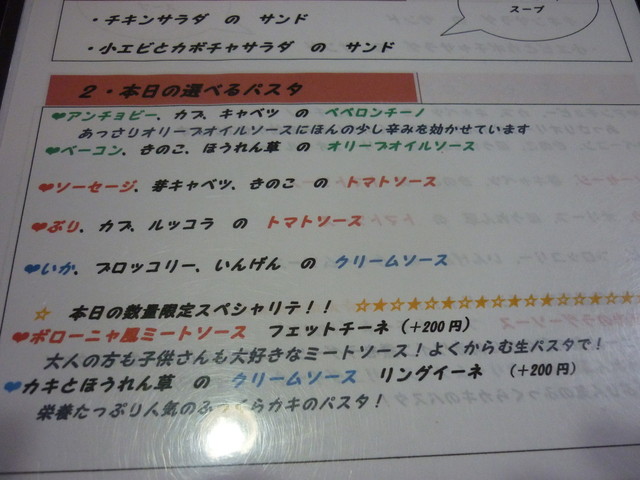 スープ
・チキンサラダ の サンド
・小エビとカボチャサラダ の サンド
２・本日の選べるパスタ
❤アンチョビー、カブ、キャベツ の ペペロンチーノ
あっさりオリーブオイルソースにほんの少し辛みを効かせています
❤ベーコン、きのこ、ほうれん草 の オリーブオイルソース
❤ソーセージ、芽キャベツ、きのこ の トマトソース
❤ぶり、カブ、ルッコラ の トマトソース
❤いか、ブロッコリー、いんげん の クリームソース
☆ 本日の数量限定スペシャリテ！！ ☆★☆★☆★☆★☆★☆★☆★☆★☆★☆★☆★
❤ボローニャ風ミートソース フェットチーネ（＋200円）
大人の方も子供さんも大好きなミートソース！よくからむ生パスタで！
❤カキとほうれん草 の クリームソース リングイーネ （＋200円）
栄養たっぷり人気のふっくらカキのパスタ！